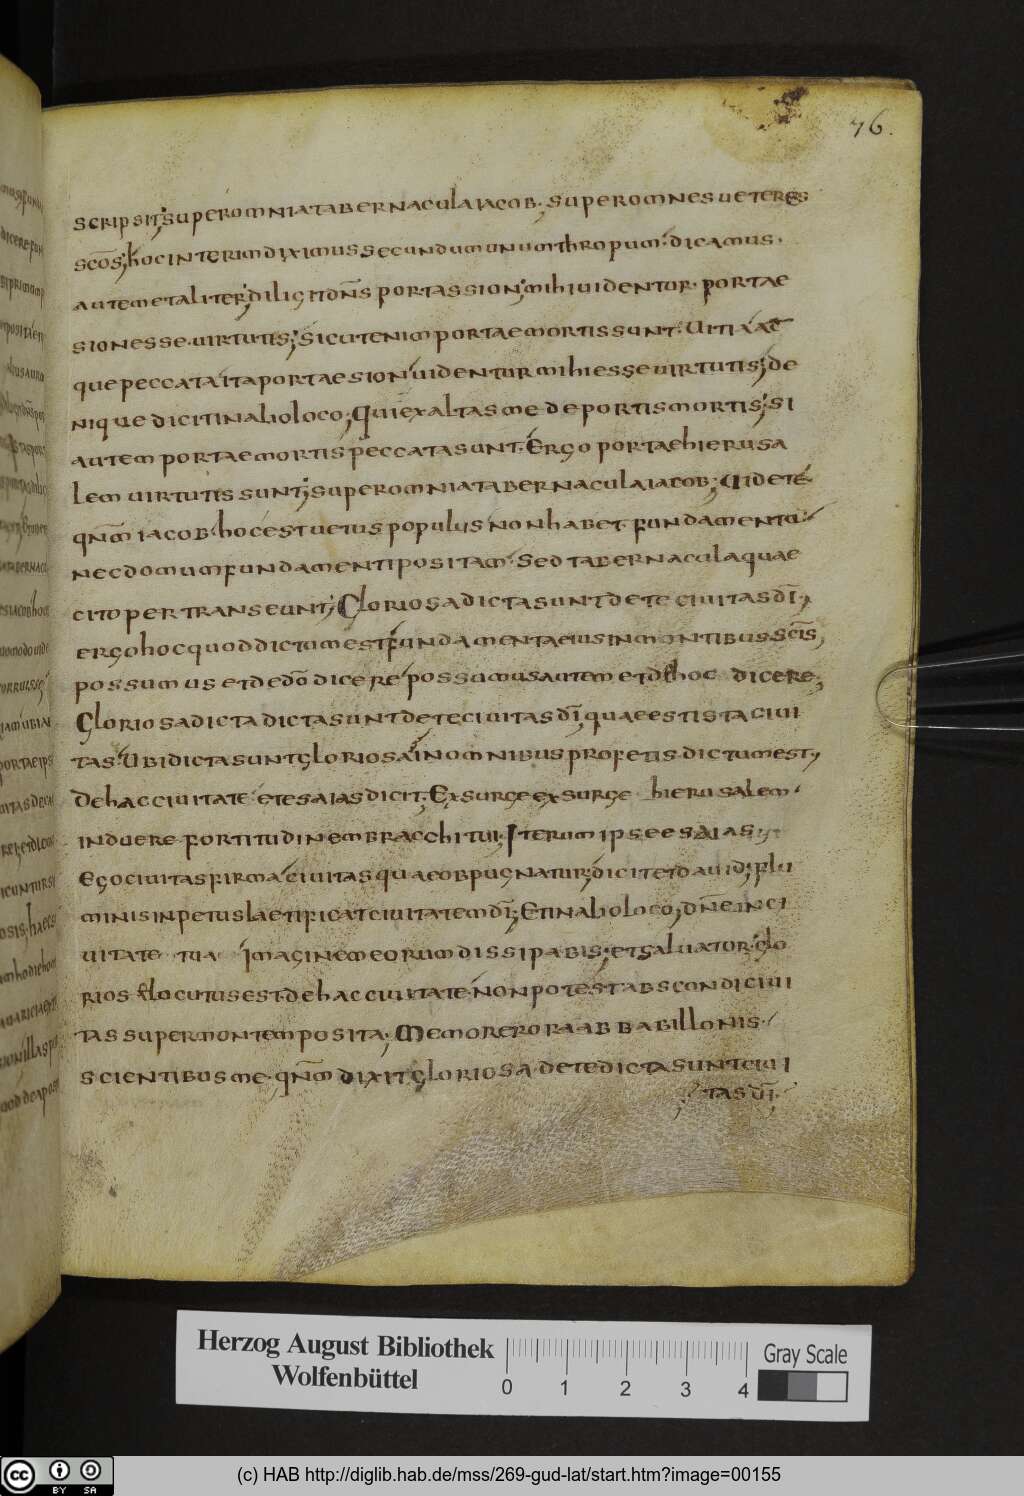 76.
scripsit; super omnia tabernacula iacob. super omnes ueteres
sc̄os; hoc interim diximus secundum unum thropum. dicamus.
autem et aliter; diligit dn̄s portas sion; mihi uidentur. portae
sion esse. uirtutis; sicut enim portae mortis sunt. uitia at
que peccata ita portae sion uidentur mihi esse uirtutis; de
nique dicitin alio loco; qui exaltas me de portis mortis; si
autem portae mortis peccata sunt. Ergo portae hierusa
lem uirtutis sunt; super omnia tabernacula iacob; Uidete
qn̄m iacob. hoc est uetus populus non habet fundamentū
nec domum fundamenti positam. Sed tabernacula quae
cito pertranseunt; Gloriosa dicta sunt de te ciuitas dī;
ergo hoc quod dictum est fundamenta eius in montibus sc̄is;
possumus et de dō dicere possumus autem et de hoc dicere;
Gloriosa dicta dicta sunt de te ciuitas dī; quae est ista ciui
tas. Ubi dicta sunt gloriosa in omnibus profetis. dictum est;
De hac ciuitate et esaias dicit; Exsurge exsurge hierusalem.
induere fortitudinem bracchi tui; Iterum ipse esaias;
Ego ciuitas firma ciuitas quae obpugnatur; dicit et dauid; flu
minis inpetus laetificat ciuitatem dī; Et in alio loco; dn̄e in ci
uitate tua imaginem eorum dissipabis; et saluator. glo
riosae locutus est. de hac ciuitate. non potest abscondi ciui
tas super montem posita; Memor ero raab babillonis.
scientibus me. qn̄m dixit gloriosa de te dicta sunt ciui
tas dī;
Herzog August Bibliothek
Wolfenbüttel
0 1 2 3 4
Gray Scale
cc BY SA
(c) HAB http://diglib.hab.de/mss/269-gud-lat/start.htm?image=00155